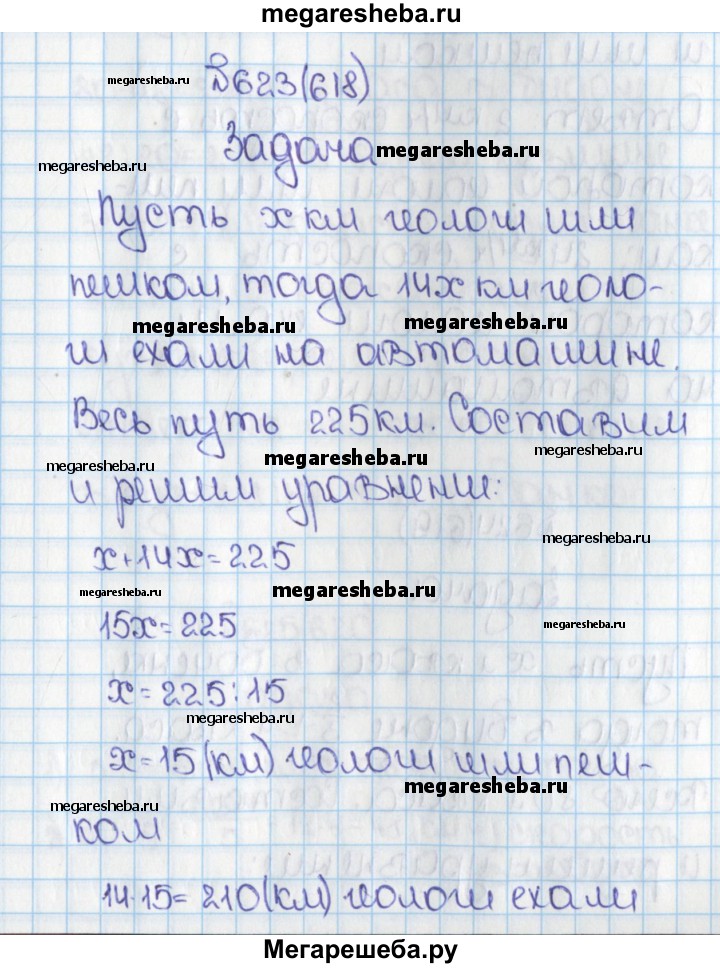 megaresheba.ru
№623(618)
megaresheba.ru
Задача
megaresheba.ru
megaresheba.ru
Пусть x км геологи шли
пешком, тогда 14x км геоло-
megaresheba.ru
megaresheba.ru
ги ехали на автомашине.
Весь путь 225 км. Составим
megaresheba.ru
megaresheba.ru
megaresheba.ru
и решим уравнение:
x+14x=225
megaresheba.ru
megaresheba.ru
megaresheba.ru
15x=225
megaresheba.ru
x=225:15
megaresheba.ru
x=15(км) геологи шли пеш-
megaresheba.ru
megaresheba.ru
ком
14·15=210(км) геологи ехали
Мегарешеба.ру